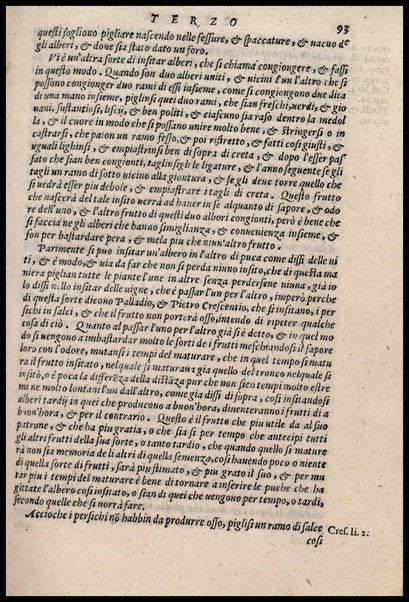 TERZO
93
questi sogliono pigliare nascendo nelle fessure, & spaccature, & uacuo de
gli alberi, & doue sia stato dato un foro.
Vi è un'altra sorte di insitar alberi, che si chiama congiongere, & fassi
in questo modo. Quando son duo alberi uniti, & uicini l'un l'altro che si
possono congionger duo rami di essi insieme, come si congiongono due dita
di una mano insieme, piglinsi quei duo rami, che sian freschi, uerdi, & gio
uani, sustantiosi, lisci, & ben politi, & ciascuno sia raso dentro la medol
la, & il cuore in modo che si possano unire molto bene, & stringersi o in
castrarsi, che paion un ramo fesso, & poi ristretto, & fatti cosi giusti, &
uguali lighinsi, & empiastrinsi ben di sopra di creta, & dopo l'esser pas
sato che sian ben congionti, taglinsigli le ligature, & l'anno seguente se gli
tagli un ramo di sotto uicino alla giontura, & se gli deue torre quello che
si uedrà esser piu debole, & empiastrare i tagli di creta. Questo frutto
che nascerà del tale insito uerrà ad hauer in se alquanto di sapore, & odo
re dell'uno, & l'altro frutto di questi duo albori congionti, però è bene che
si faccia ne gli alberi che hanno simiglianza, & conuenienza insieme, &
son per bastardare pera, & mela piu che niun'altro frutto.
Parimente si puo insitar un'albero in l'altro di puca come dissi delle ui
ti, & è modo, & uia da far che non si perda niuno insito, che di questa ma
niera piglian tutte le piante l'une in altre senza perdersene niuna, già io
lo dissi nello insitar delle uigne, che è passar l'un per l'altro, imperò perche
di questa sorte dicono Palladio, & Pietro Crescentio, che si insitano, i per
sichi in salci, & che il frutto non porterà osso, intendo di ripeter qualche
cosa di ciò. Quanto al passar l'uno per l'altro già si è detto, & in quel mo
do si uengono a imbastardar molto le sorti de i frutti meschiandosi il sapore
loro con l'odore, mutansi i tempi del maturare, che in quel tempo si matu
ra il frutto insitato, nel quale si maturaua già quello del tronco nel quale si
insitò, è poca la differẽza della distãza pur che non sien tempi molto estre
mi ne molto lontani l'un dall'altro, come gia dissi di sopra, cosi insitandosi
alberi tardij in quei che producono a buon'hora, diuenteranno i frutti di a
buon'hora, & per il contrario. Questo è il frutto che piu utile da al suo
patrone, & che ha piu gratia, o che sia si per tempo che antecipi tutti
gli altri frutti della sua sorte, o tanto tardio, che quando quello si mature
rà non sia memoria de li altri di quella semenza, cosi hauendo poco o niente
di quella sorte di frutti, sarà piu stimato, & piu grato il suo, & per mu
tar piu i tempi del maturare è bene di tornare a inserire le pushe che ha
gittate l'albero cosi insitato, o sian di quei che uengono per tempo, o tardi,
secondo quelle che si uorrà fare.
Accioche i persichi nõ habbin da produrre osso, piglisi un ramo di salce
Cres. li. 2.
cosi